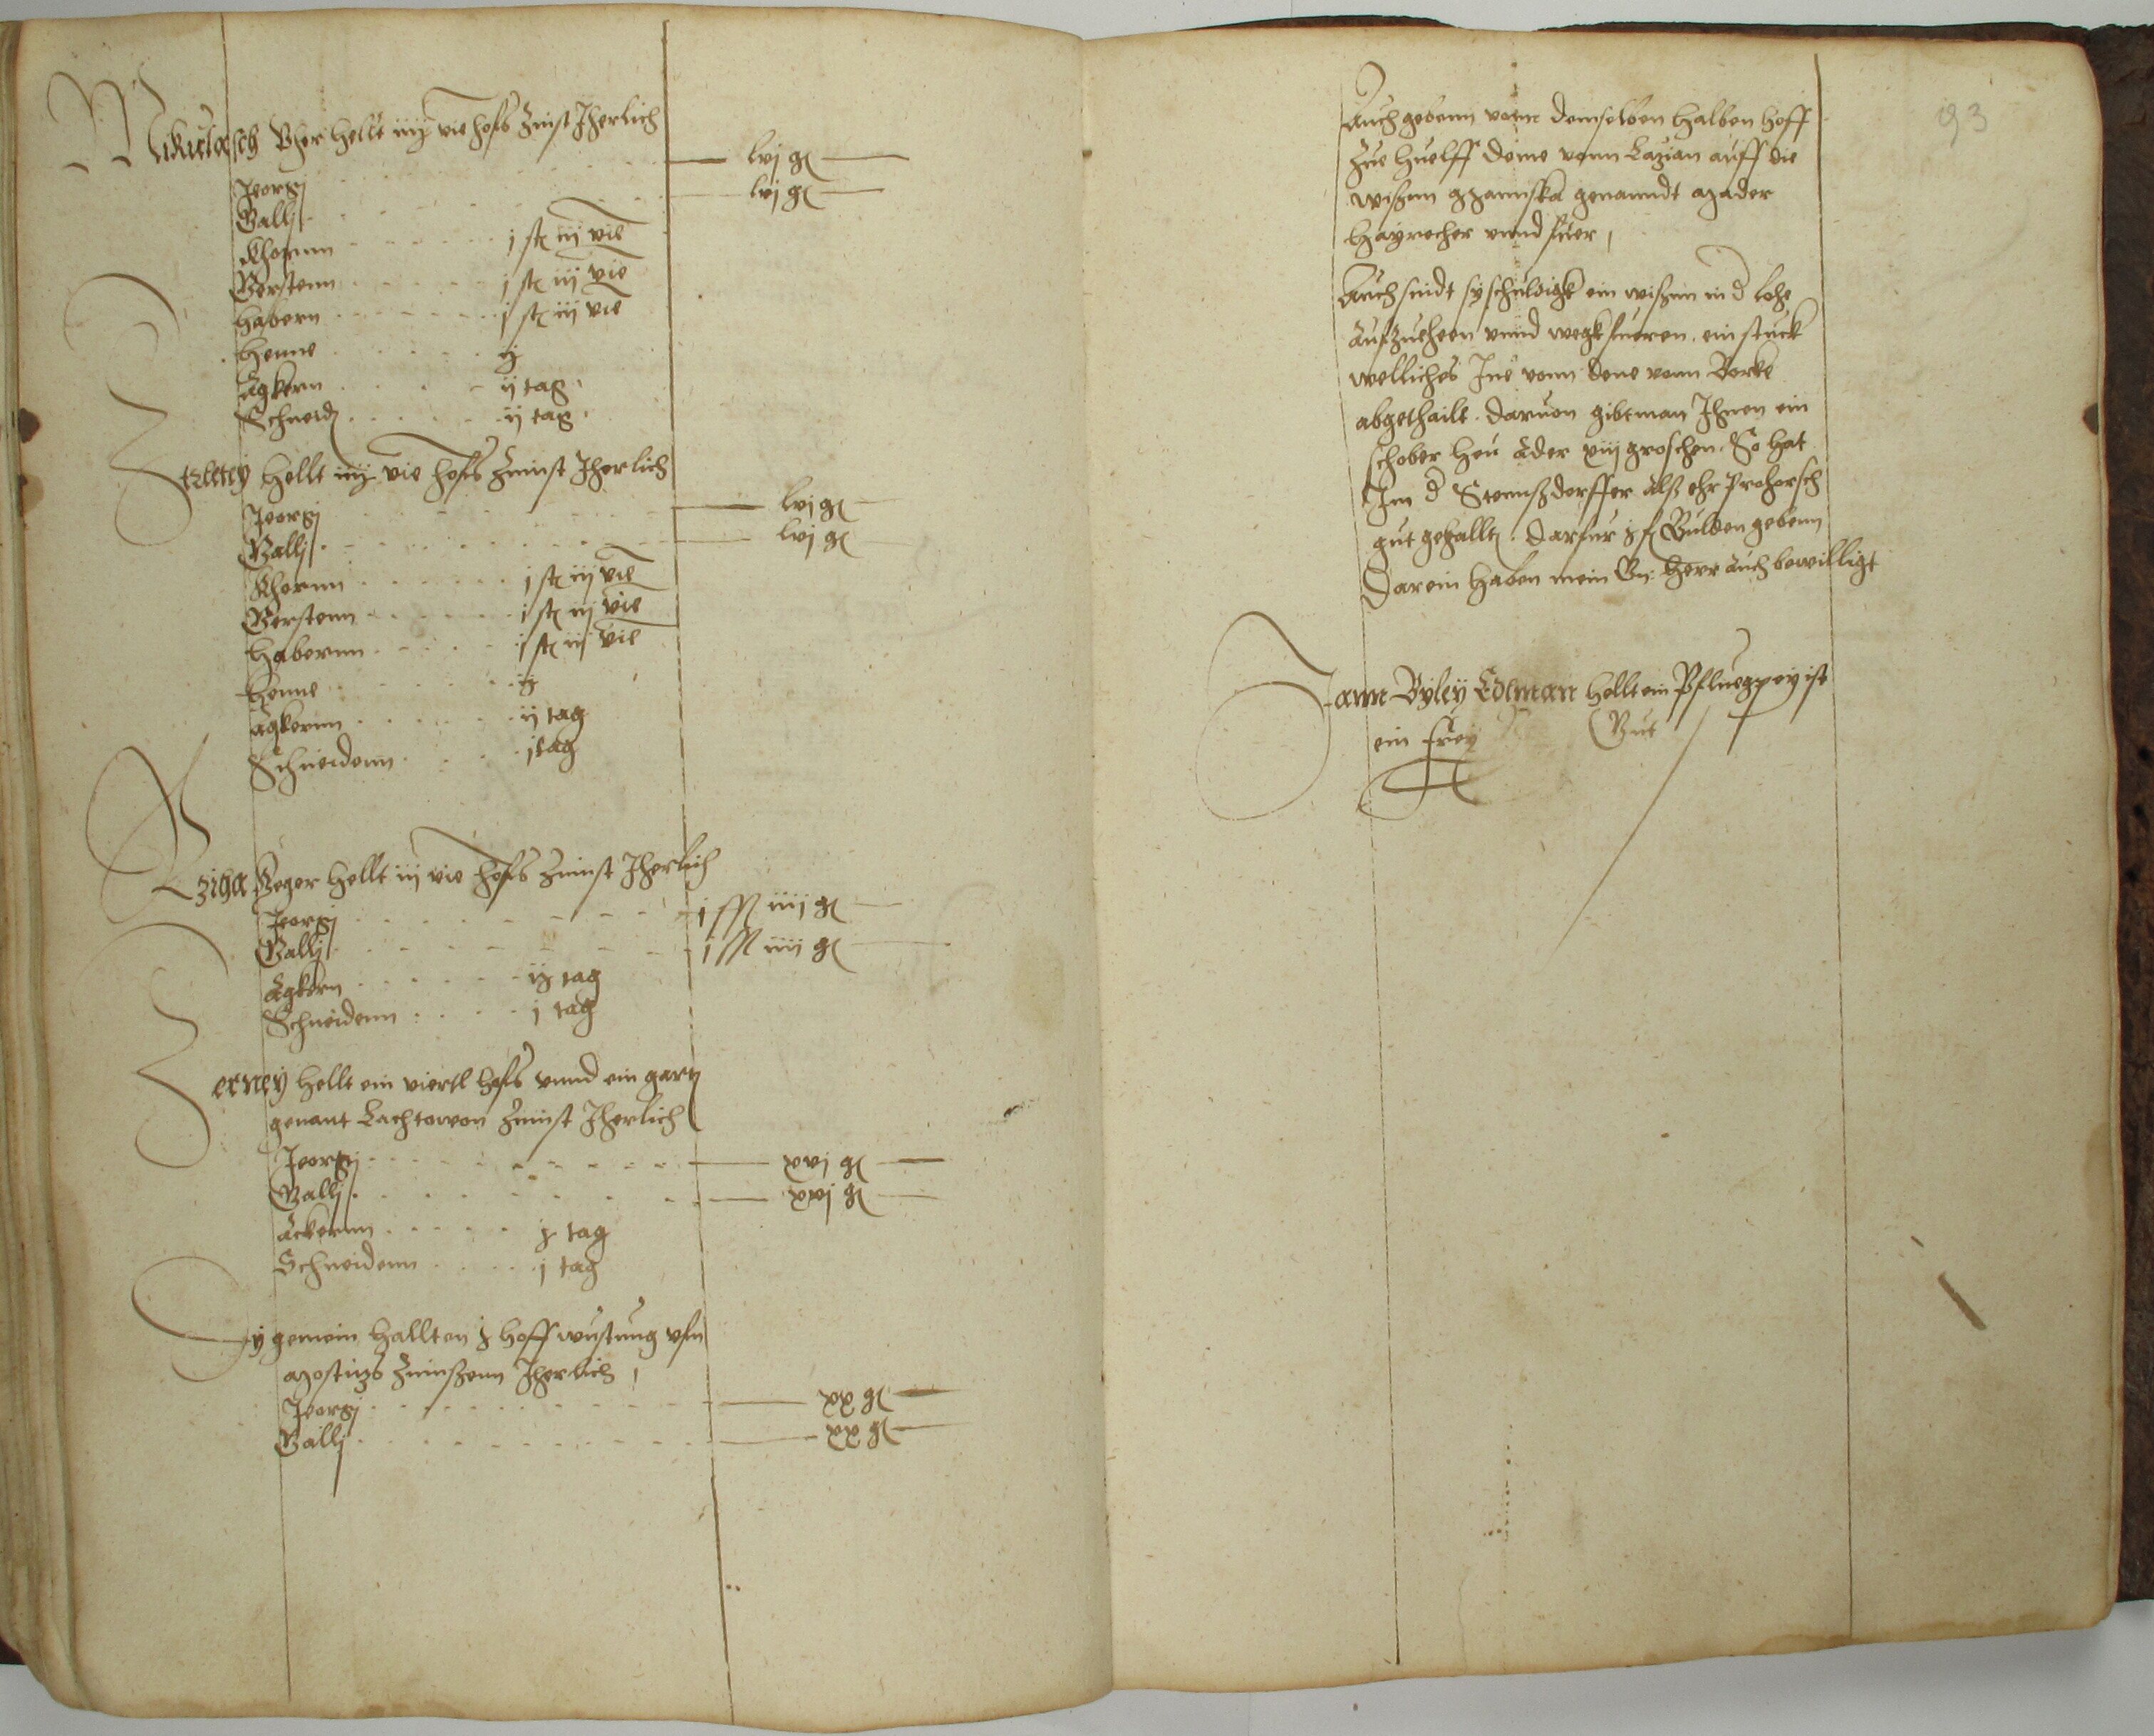 Mikulasch Bher hellt iiij vie hofs Zinst Jherlich
Jeorgj lvj gl
Gallj lvj gl
Khornn j st iij vie
Gerstenn j st iij vie
habern j st iij vie
henne ij
Agkern ij tag
Schneid ij tag
hellt iiij vie hofs Zinnst Jherlich
Jeorgj lvj gl
Gallj lvj gl
Khornn j st iij vie
Gerstenn j st iij vie
Habernn j st iij vie
Henne ij
Agkernn ij tag
Schneidenn j tag
Rziha Beger hellt iij vie hofs Zinnst Jherlich
Jeorgj j ßß iiij gl
Gallj j ßß iiij gl
Agkern ij tag
Schneidenn j tag
Zerney hellt ein viertl hofs vnnd ein gart
genant Lachtowon Zinnst Jherlich
Jeorgj xvj gl
Gallj xvj gl
Ackernn tag
Schneidenn j tag
Dy gemein hallten hoff wustung
Zinnßenn Jherlich
Jeorgj xx gl
Gallj xx gl
93
Auch gebenn vonn demselben halben hoff
Zue huelff deme vonn Lazan auff die
wißenn genanndt
hayrecher vnnd fuer
Auch sindt sy schuldigk ein wißenn in d lohe
aufzuheben vnnd wegkfueren ein stuck
welliches Jne vonn dene vonn Borke
abgethailt daruon gibt man Jhnen ein
schober heu ader xiij groschen So hat
Jm d Sternßdorffer alß ehr Prohorsch
gut gehallt darfur Gulden gebenn
Darein haben mein Gn: herr auch bewilligt
Jann Byley Edlman hellt ein Pfluegpey ist
ein frey Gut